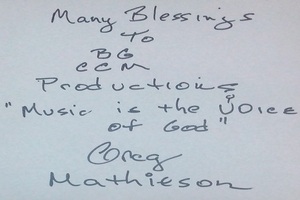 Many Blessings
To
BG
CCM
Productions
"Music is the Voice
of God"
Greg
Mathieson